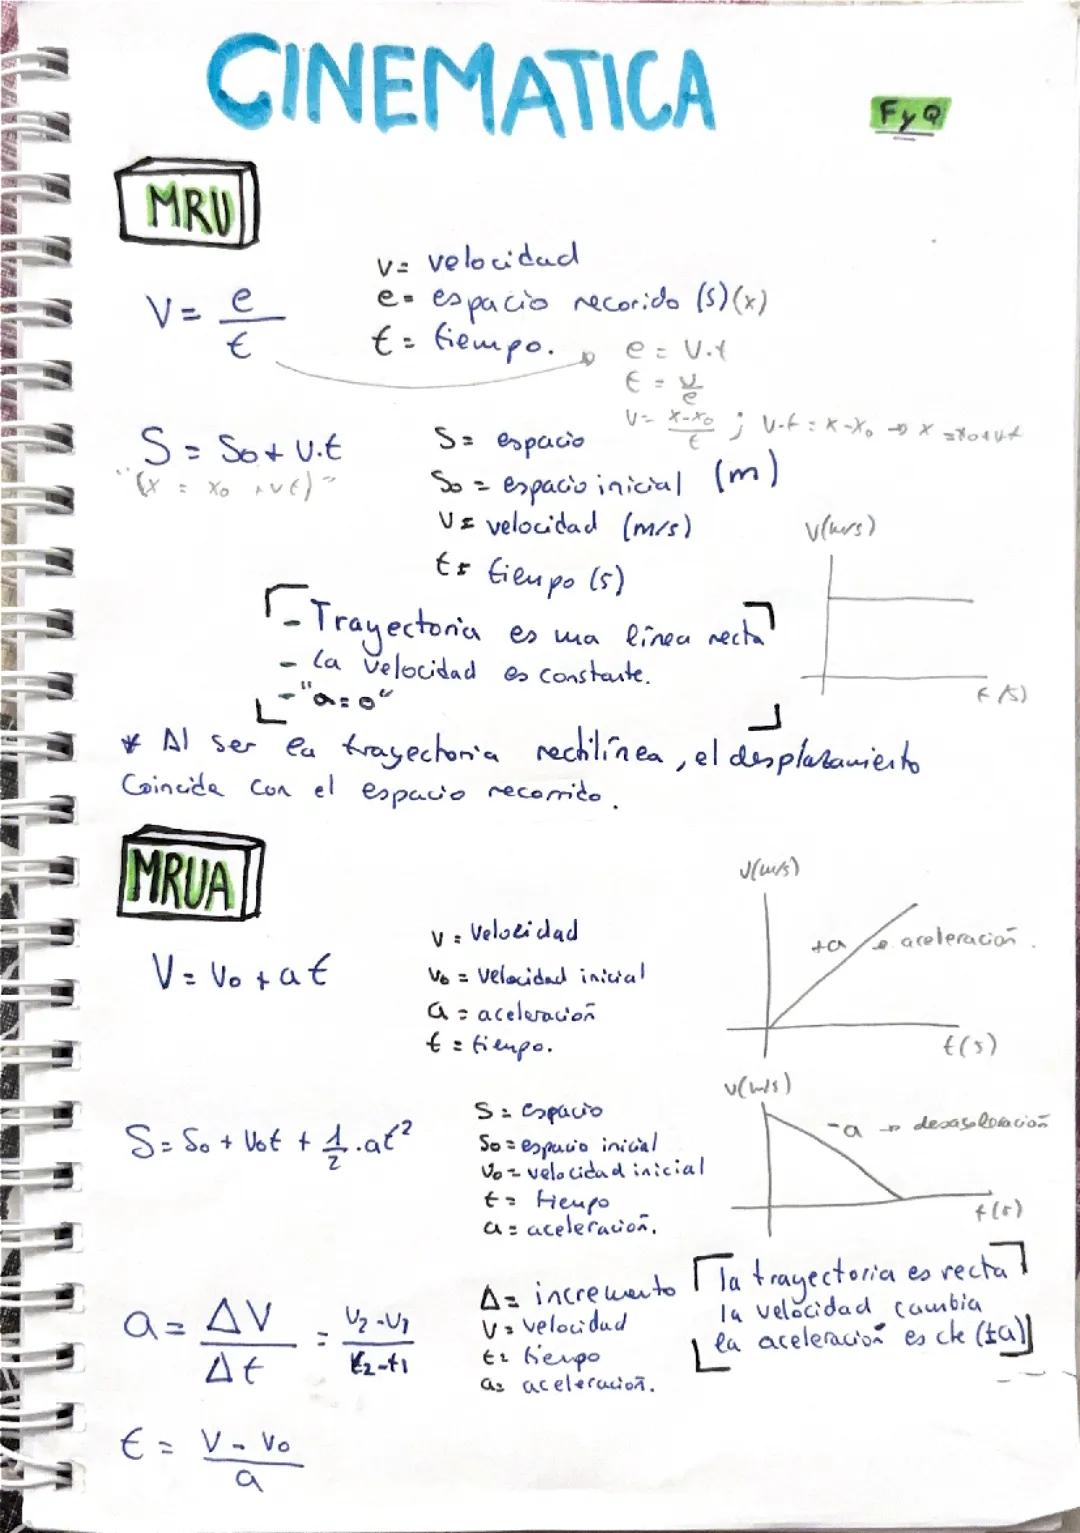 CINEMATICA
FyQ
MRU
V = e/t
v = velocidad
e = espacio recorido (s)(x)
t = tiempo.
e = v.t
t = v/e
v = x-x₀/t ; v.t = x-x₀ → x = x₀+vt
S = S₀ + v.t
"(x = x₀ + vt)"
S = espacio
S₀ = espacio inicial (m)
V = velocidad (m/s)
t = tiempo (s)
V(m/s)
t (s)
- Trayectoria es una línea recta
- la velocidad es constante.
- "a = 0"
* Al ser la trayectoria rectilínea, el desplazamiento
Coincide con el espacio recorrido.
MRUA
V = V₀ + at
v = velocidad
v₀ = velocidad inicial
a = aceleración
t = tiempo.
V(m/s)
+a → aceleración.
t(s)
S = S₀ + V₀t + 1/2 . at²
S = espacio
S₀ = espacio inicial
V₀ = velocidad inicial
t = tiempo
a = aceleración.
v(m/s)
-a → desaceloración
t(s)
a = ΔV/Δt = V₂-V₁/t₂-t₁
Δ = incremento
V = velocidad
t = tiempo
a = aceleración.
la trayectoria es recta
la velocidad cambia
la aceleración es cte (±a)
t = V - V₀/a